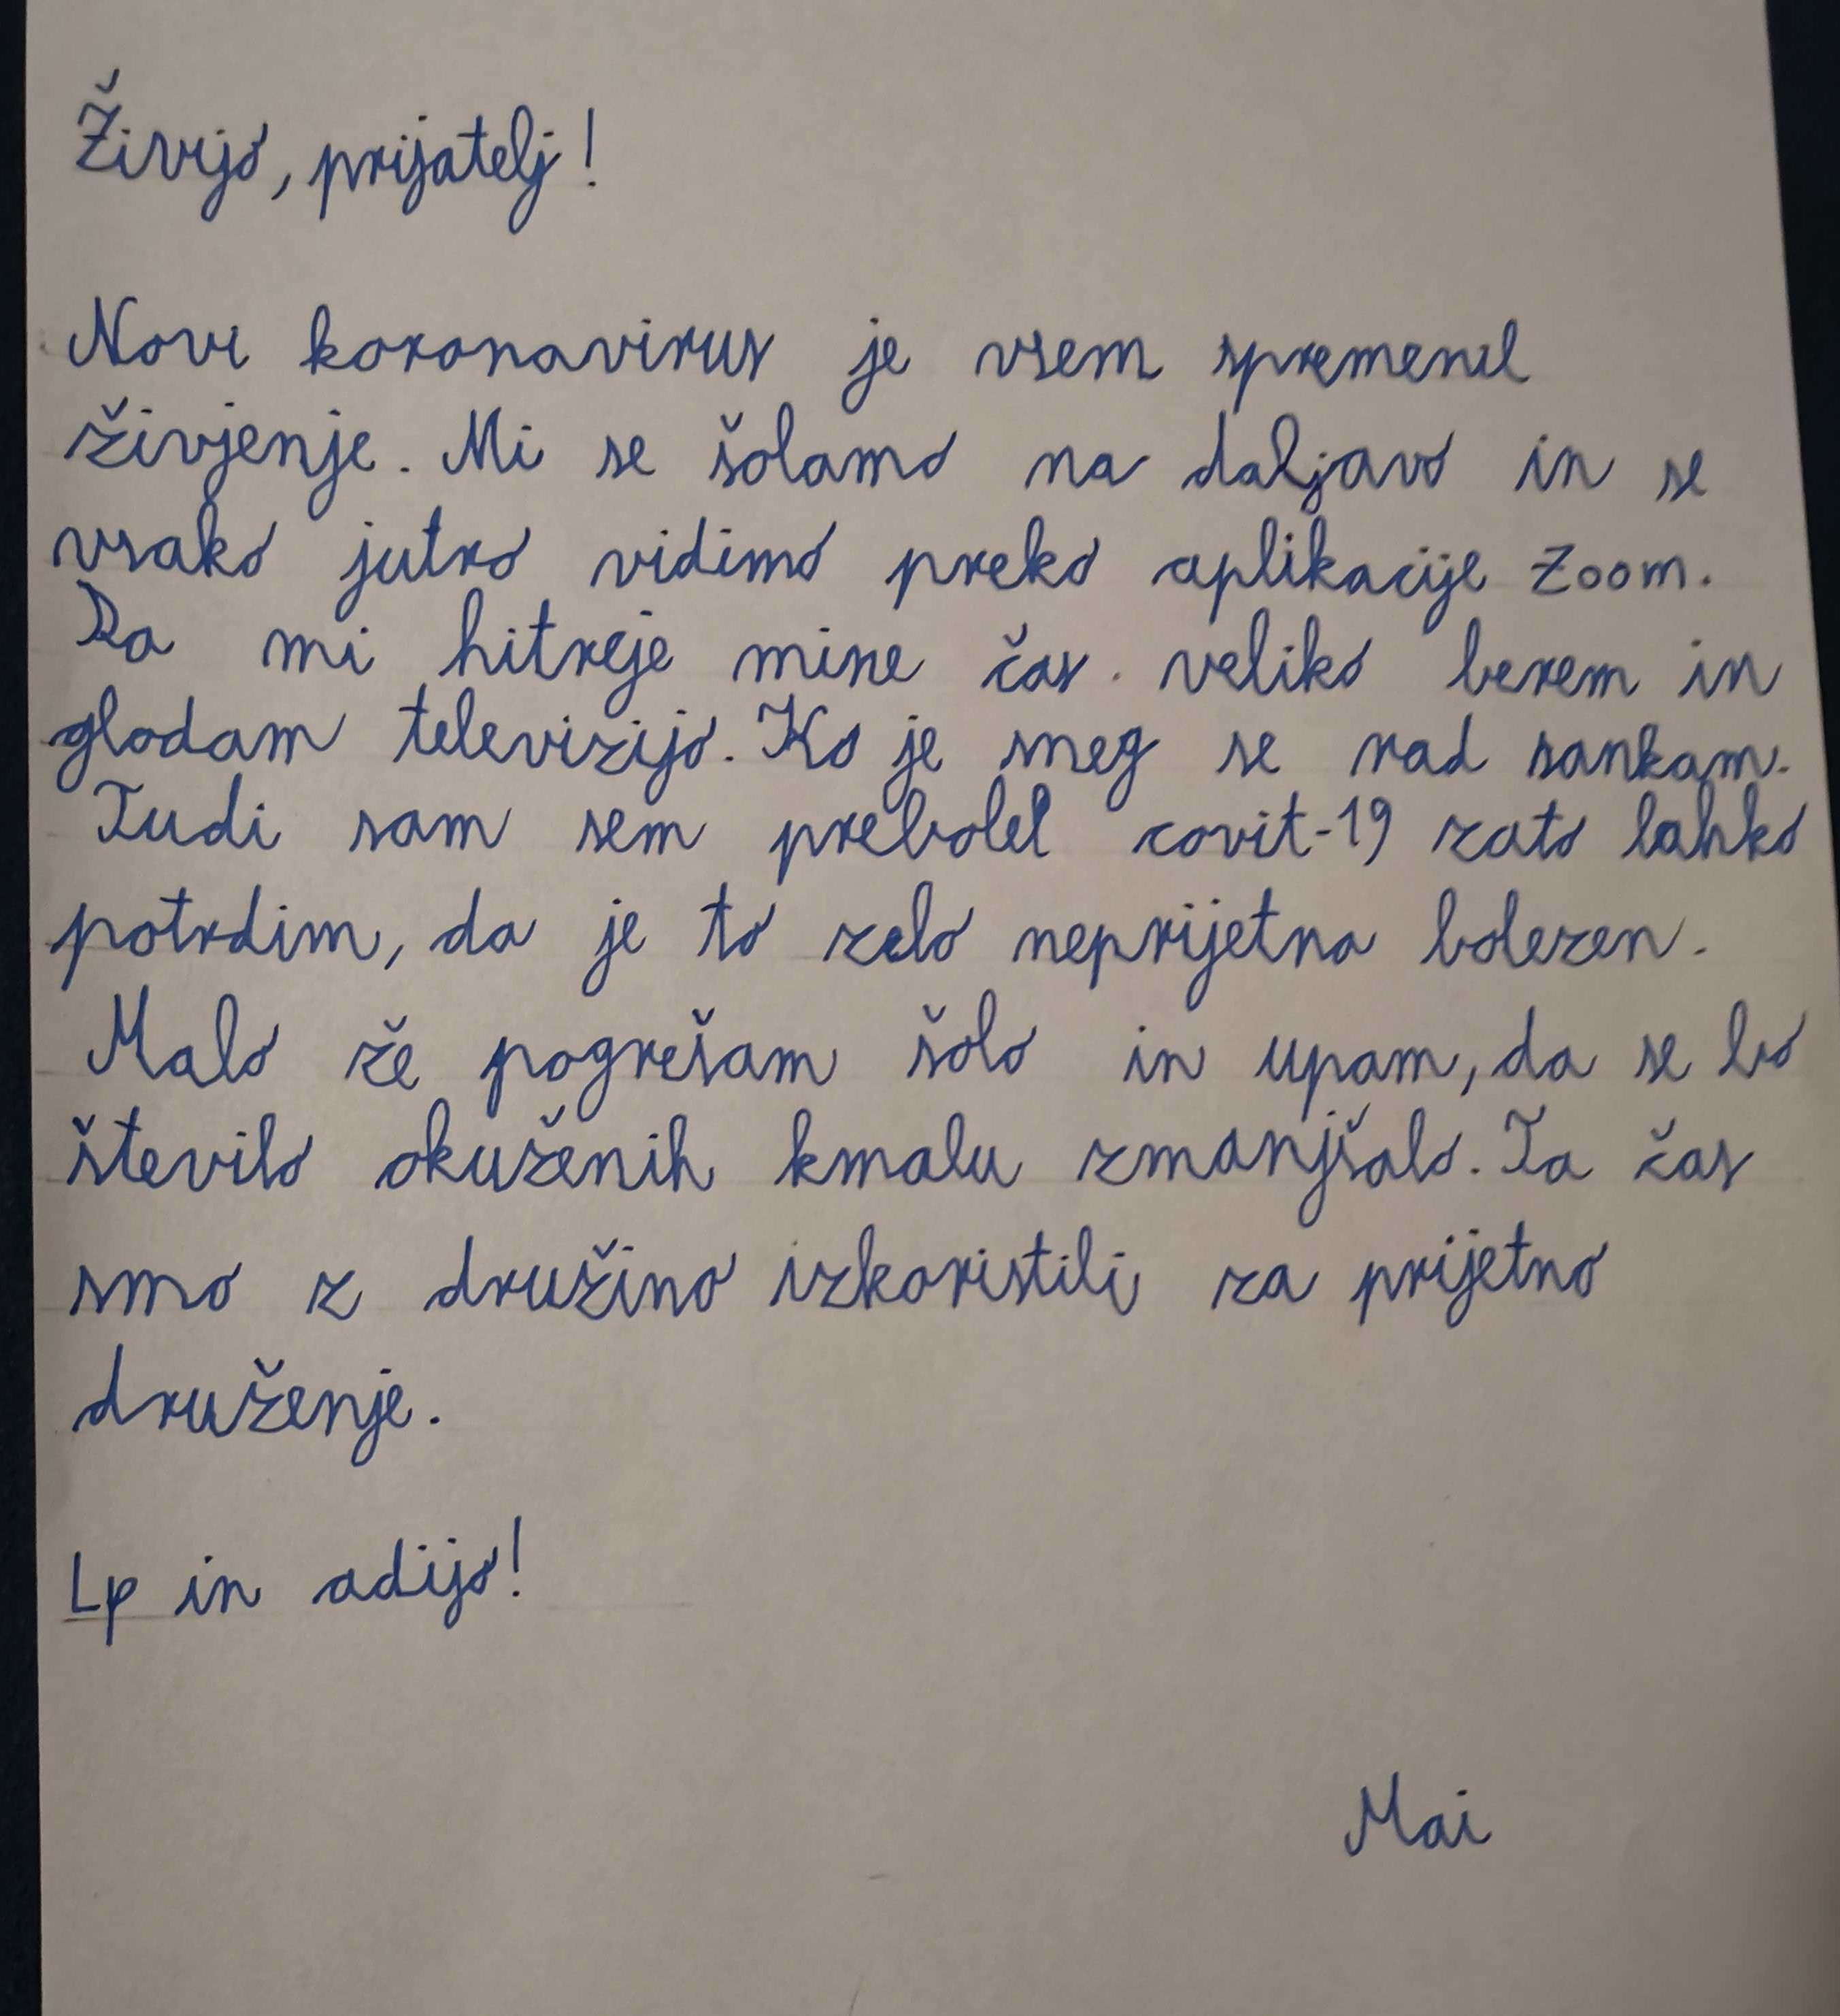 Živijo, prijatelj!
Novi koronavirus je vsem spremenil
življenje. Mi se šolamo na daljavo in se
vsako jutro vidimo preko aplikacije Zoom.
Da mi hitreje mine čas. veliko berem in
glodam televizijo. Ko je sneg se rad sankam.
Tudi sam sem prebolel covit-19 zato lahko
potrdim, da je to zelo neprijetna bolezen.
Malo že pogrešam šolo in upam, da se bo
število okuženih kmalu zmanjšalo. Ta čas
smo z družino izkoristili za prijetno
druženje.
Lp in adijo!
Mai